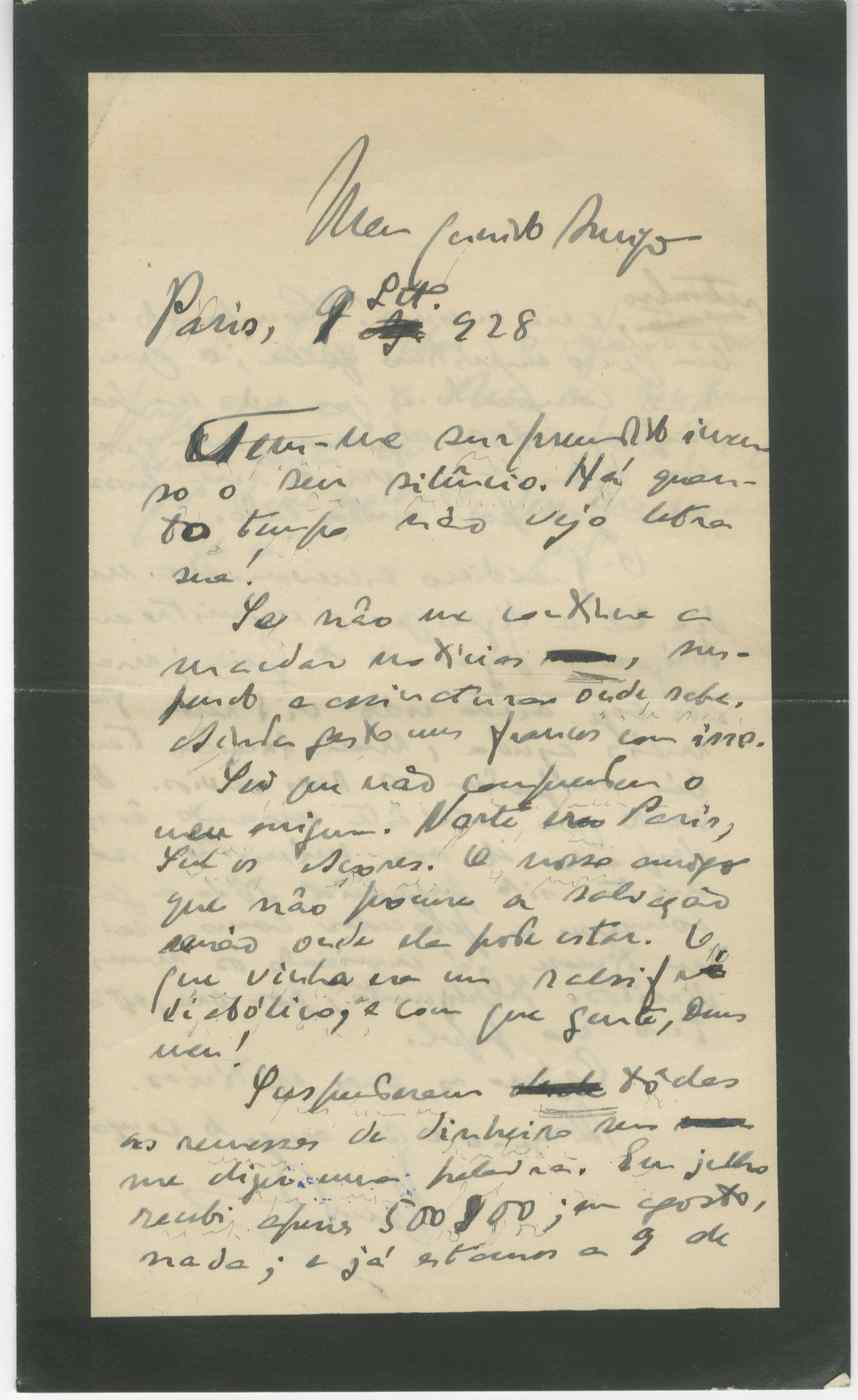 Meu querido Amigo
Paris, 9 Set. 928
Tem-me surpreendido imen-
so o seu silêncio. Há quan-
to tempo não vejo letra
sua!
Se não me continua a
mandar notícias, sus-
pendo a assinatura onde sabe.
Ainda gasto uns francos com isso.
Sei que não compreendem o
meu enigma. Norte Paris,
Sul os Açores. O nosso amigo
que não procure a salvação
senão onde ela pode estar. O
que vinha era um
diabólico, e com que gente, Deus
meu!
Suspenderam tôdas
as remessas de dinheiro sem
me dizer uma palavra. Em julho
recebi apenas 500$00; em agosto,
nada; e já estamos a 9 de